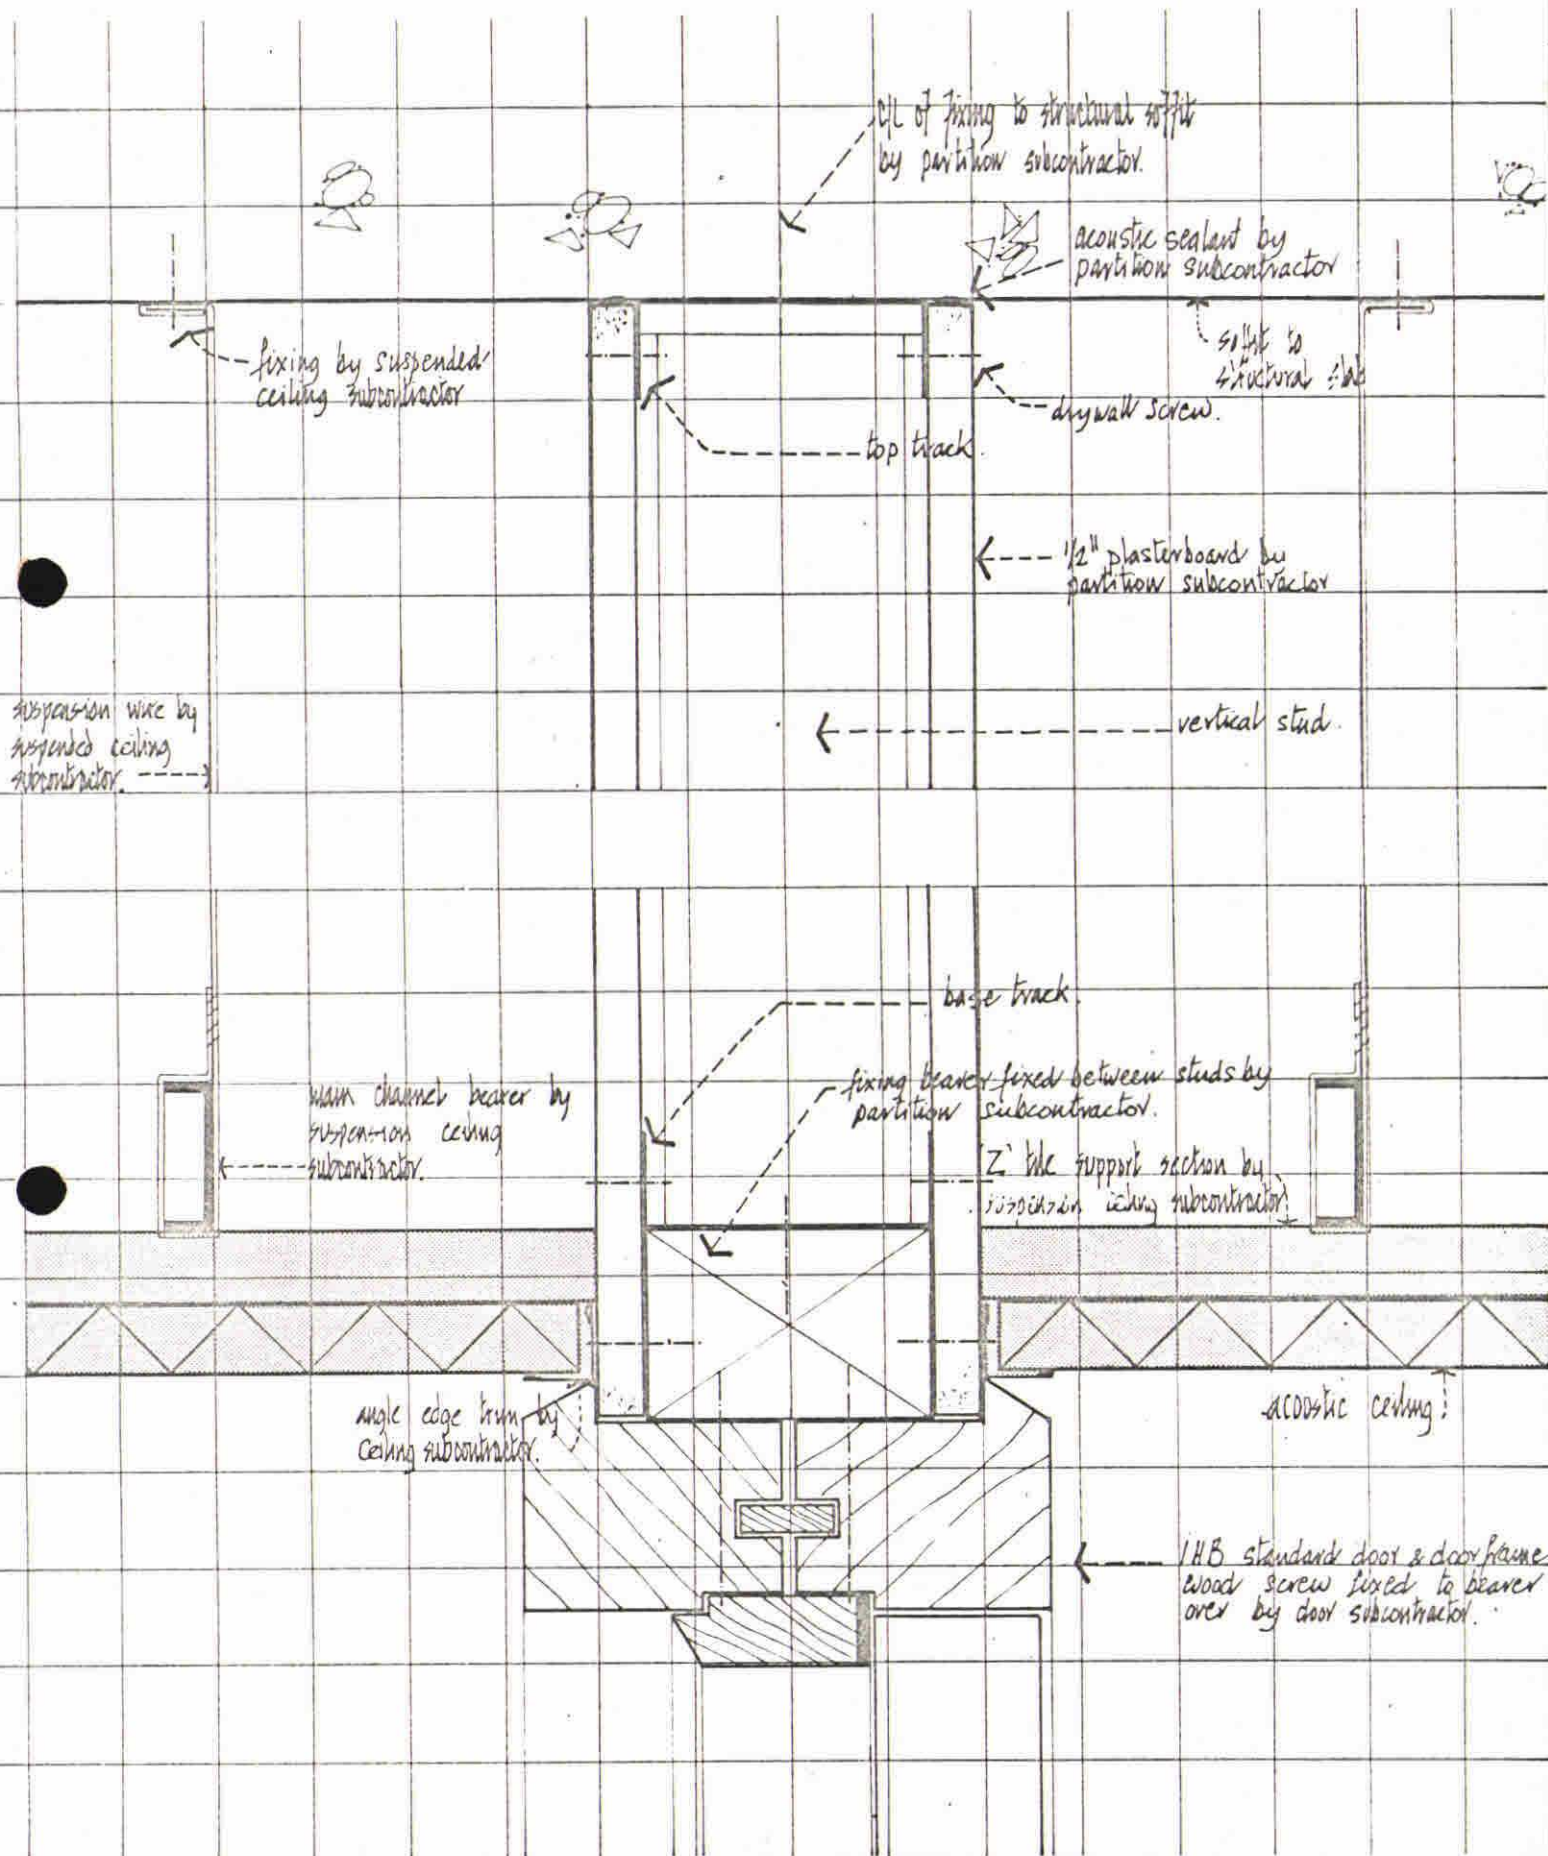 C/L of fixing to structural soffit
by partition subcontractor.
acoustic sealant by
partition subcontractor
fixing by suspended
ceiling subcontractor
soffit to
structural slab
drywall screw.
top track.
1/2" plasterboard by
partition subcontractor
suspension wire by
suspended ceiling
subcontractor.
vertical stud.
base track.
fixing bearer fixed between studs by
partition subcontractor.
main channel bearer by
suspension ceiling
subcontractor.
'Z' tile support section by
suspension ceiling subcontractor
angle edge trim by
ceiling subcontractor.
acoustic ceiling.
IHB standard door & door frame
wood screw fixed to bearer
over by door subcontractor.